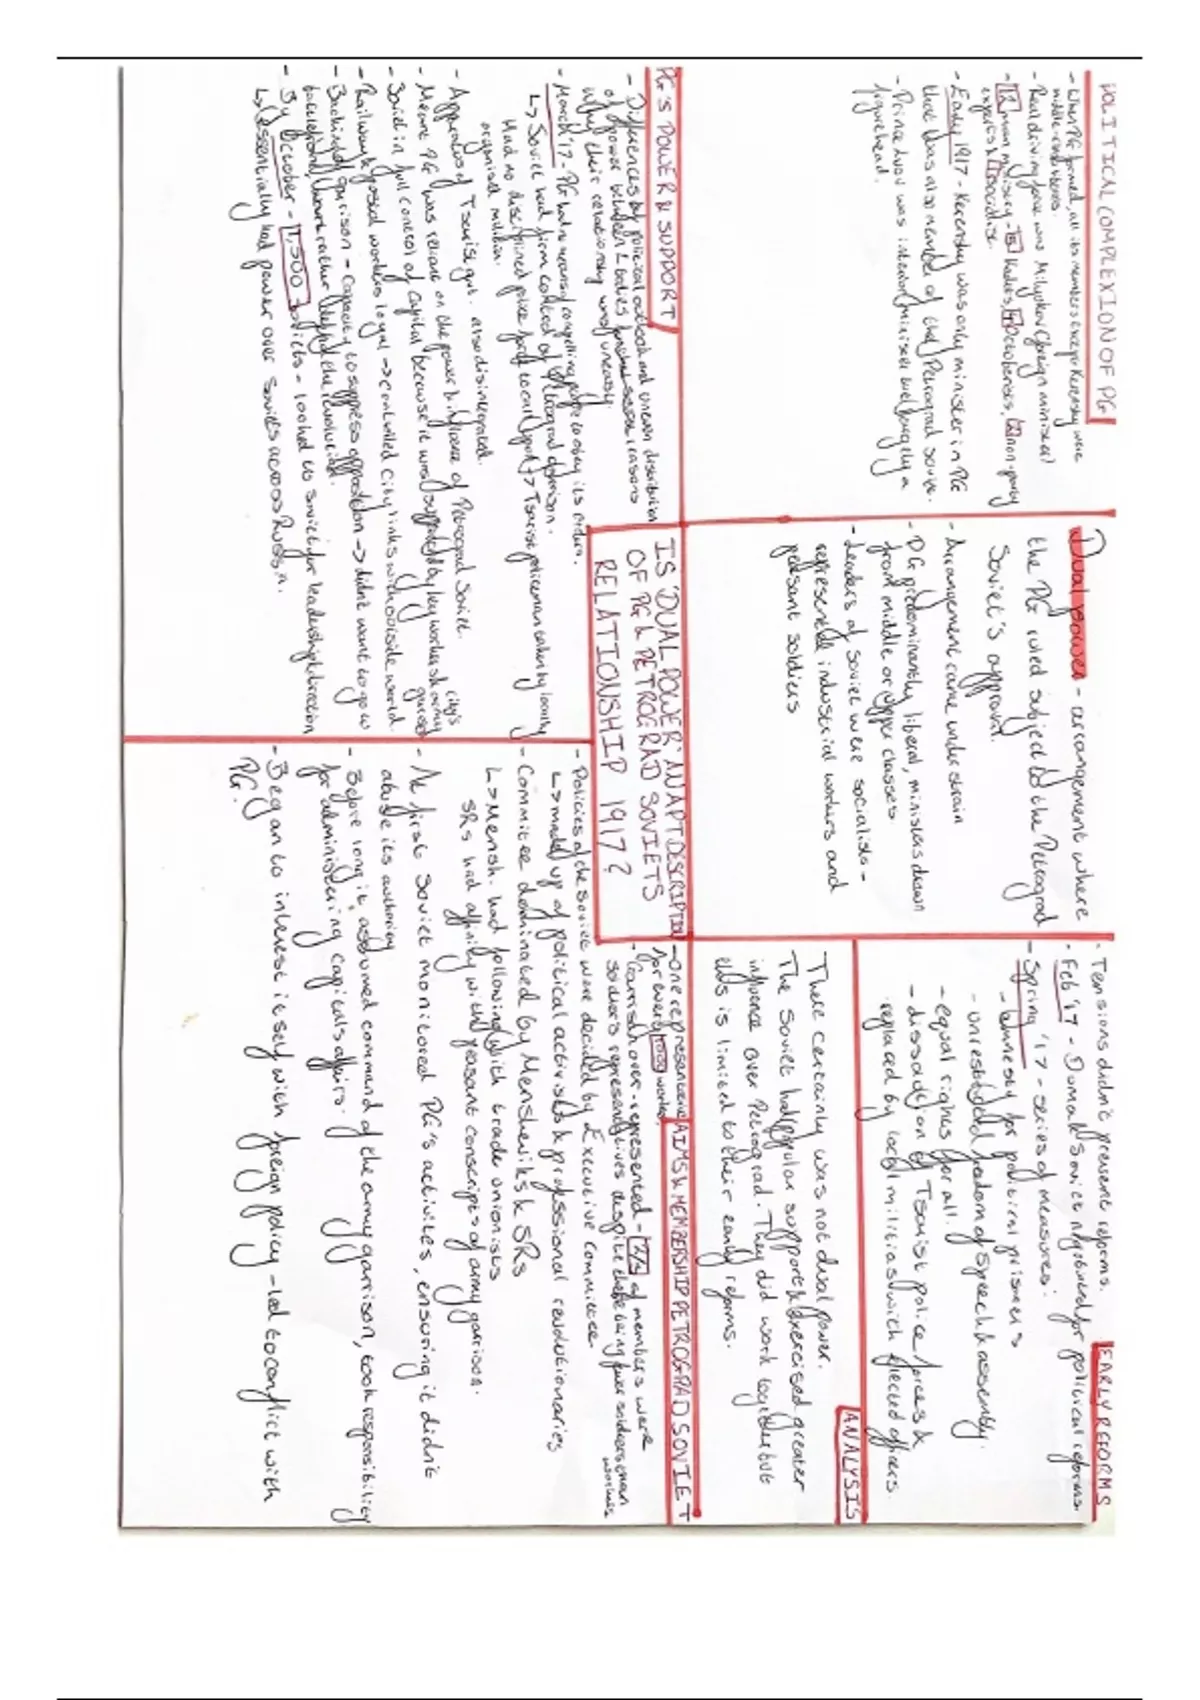 POLITICAL COMPLEXION OF PG
- When PG formed, all its members except Kerensky were
middle-
- Real driving force was Milyukov (foreign minister)
- 12 man ministry - Kadets, Octobrists, 2 non-party
experts & 1 socialist.
- Early 1917 - Kerensky was only minister in PG
that was also member of the Petrograd soviet.
- Prince Lvov was interior minister but largely a
figurehead.
Dual power - arrangement where
the PG ruled subject to the Petrograd
Soviet's approval.
- Arrangement came under strain
- PG predominantly liberal, ministers drawn
from middle or upper classes
- Leaders of Soviet were socialists -
represented industrial workers and
peasant soldiers
EARLY REFORMS
- Tensions didn't prevent reforms.
- Feb '17 - Duma & Soviet negotiated for political reforms.
- Spring '17 - series of measures:
- amnesty for political prisoners
- unrestricted freedom of speech & assembly.
- equal rights for all.
- dissolution of Tsarist police forces &
replaced by local militias with elected officers.
ANALYSIS
There certainly was not dual power.
The Soviet had popular support & exercised greater
influence over Petrograd. They did work together but
this is limited to their early reforms.
IS 'DUAL POWER' AN APT DESCRIPTION
OF PG & PETROGRAD SOVIETS
RELATIONSHIP 1917?
PG'S POWER & SUPPORT
- Differences b/w political outlook and uneven distribution
of power between 2 bodies reasons
why their relationship was uneasy.
- March '17 - PG had no means of compelling people to obey its orders.
↳ Soviet had firm control of Petrograd garrison.
Had no disciplined police force to call upon → Tsarist policeman taken by locally
organised militia.
- Apparatus of Tsarist gvt. also disintegrated.
- Meant PG was reliant on the power & influence of Petrograd Soviet.
- Soviet in full control of capital because it was supported by key workers & army city's garrison
- Railway & postal workers loyal → controlled city links with outside world
- Backing of garrison - capacity to suppress opposition → didn't want to go to
battlefield, would rather defend the revolution.
- By October - 1,500 soviets - looked to soviet for leadership & direction
↳ Essentially had power over soviets across Russia.
AIMS & MEMBERSHIP PETROGRAD SOVIET
- One representative
for every 1000 workers
- Garrison over-represented - 2/3 of members were
soldier's representatives despite there being fewer soldiers than
workers
- Policies of the soviet were decided by Executive committee
↳ made up of political activists & professional revolutionaries
- Committee dominated by Mensheviks & SRs
↳ Mensh. had following with trade unionists
SRs had affinity with peasant conscripts of army garrison.
- At first soviet monitored PG's activities, ensuring it didn't
abuse its authority
- Before long it assumed command of the army garrison, took responsibility
for administering capital's affairs.
- Began to interest itself with foreign policy - led to conflict with
PG.